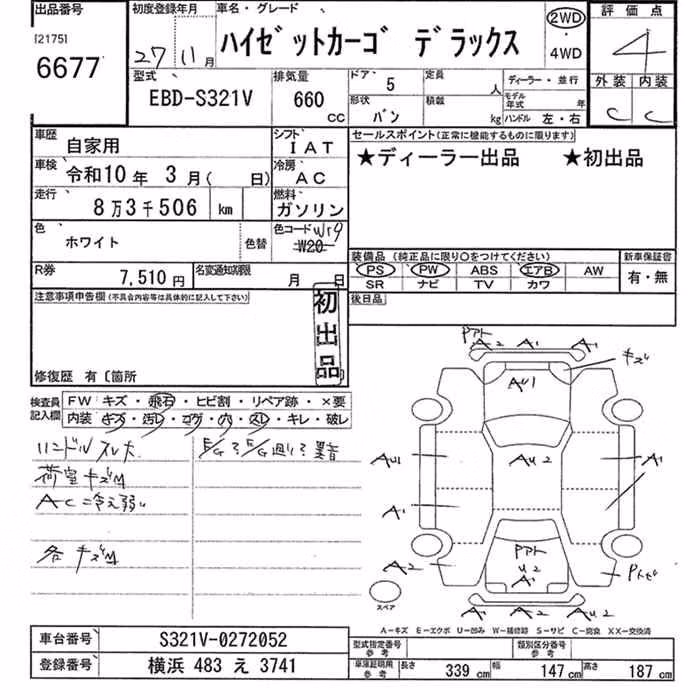 出品番号 初度登録年月 車名・グレード 2WD 評価点
[2175]
6677 27 11月 ハイゼットカーゴ デラックス ・ 4
4WD
型式 排気量 ドア 5 定員 人 ディーラー・並行 外装 内装
EBD-S321V 660 CC 形状 バン 積載 kg モデル年式 年 ハンドル 左・右 C C
車歴 自家用 シフト IAT セールスポイント(正常に機能するものに限ります)
車検 令和10年 3月( 日) 冷房 AC ★ディーラー出品 ★初出品
走行 8万3千506 km 燃料 ガソリン
色 ホワイト 色替 色コード W19
W20
装備品 (純正品に限り○をつけてください) 新車保証書
PS PW ABS エアB AW 有・無
SR ナビ TV カワ
R券 7,510円 名変通知期限 月 日
注意事項申告欄(不具合内容等は具体的に記入して下さい) 初出品 後日品
修復歴 有〔箇所
検査員記入欄 FW キズ・飛石・ヒビ割・リペア跡・×要
内装 キズ・汚レ・コゲ・穴・スレ・キレ・破レ
ハンドルスレ大
荷室キズM
AC冷え弱い
各キズM
E/G E/G廻り 異音
Pアト
A2 A1 A1
キズ
AU1
AU1 AU2 A1
A1
Pアト
A2 U2
A1 Pトビ
スペア
A2 A2 AU2
A-キズ E-エクボ U-凹み W-補修跡 S-サビ C-腐食 XX-交換済
車台番号 S321V-0272052 型式指定番号 参考 類別区分番号 参考
登録番号 横浜 483 え 3741 車庫証明用 参考 長さ 339 cm 幅 147 cm 高さ 187 cm